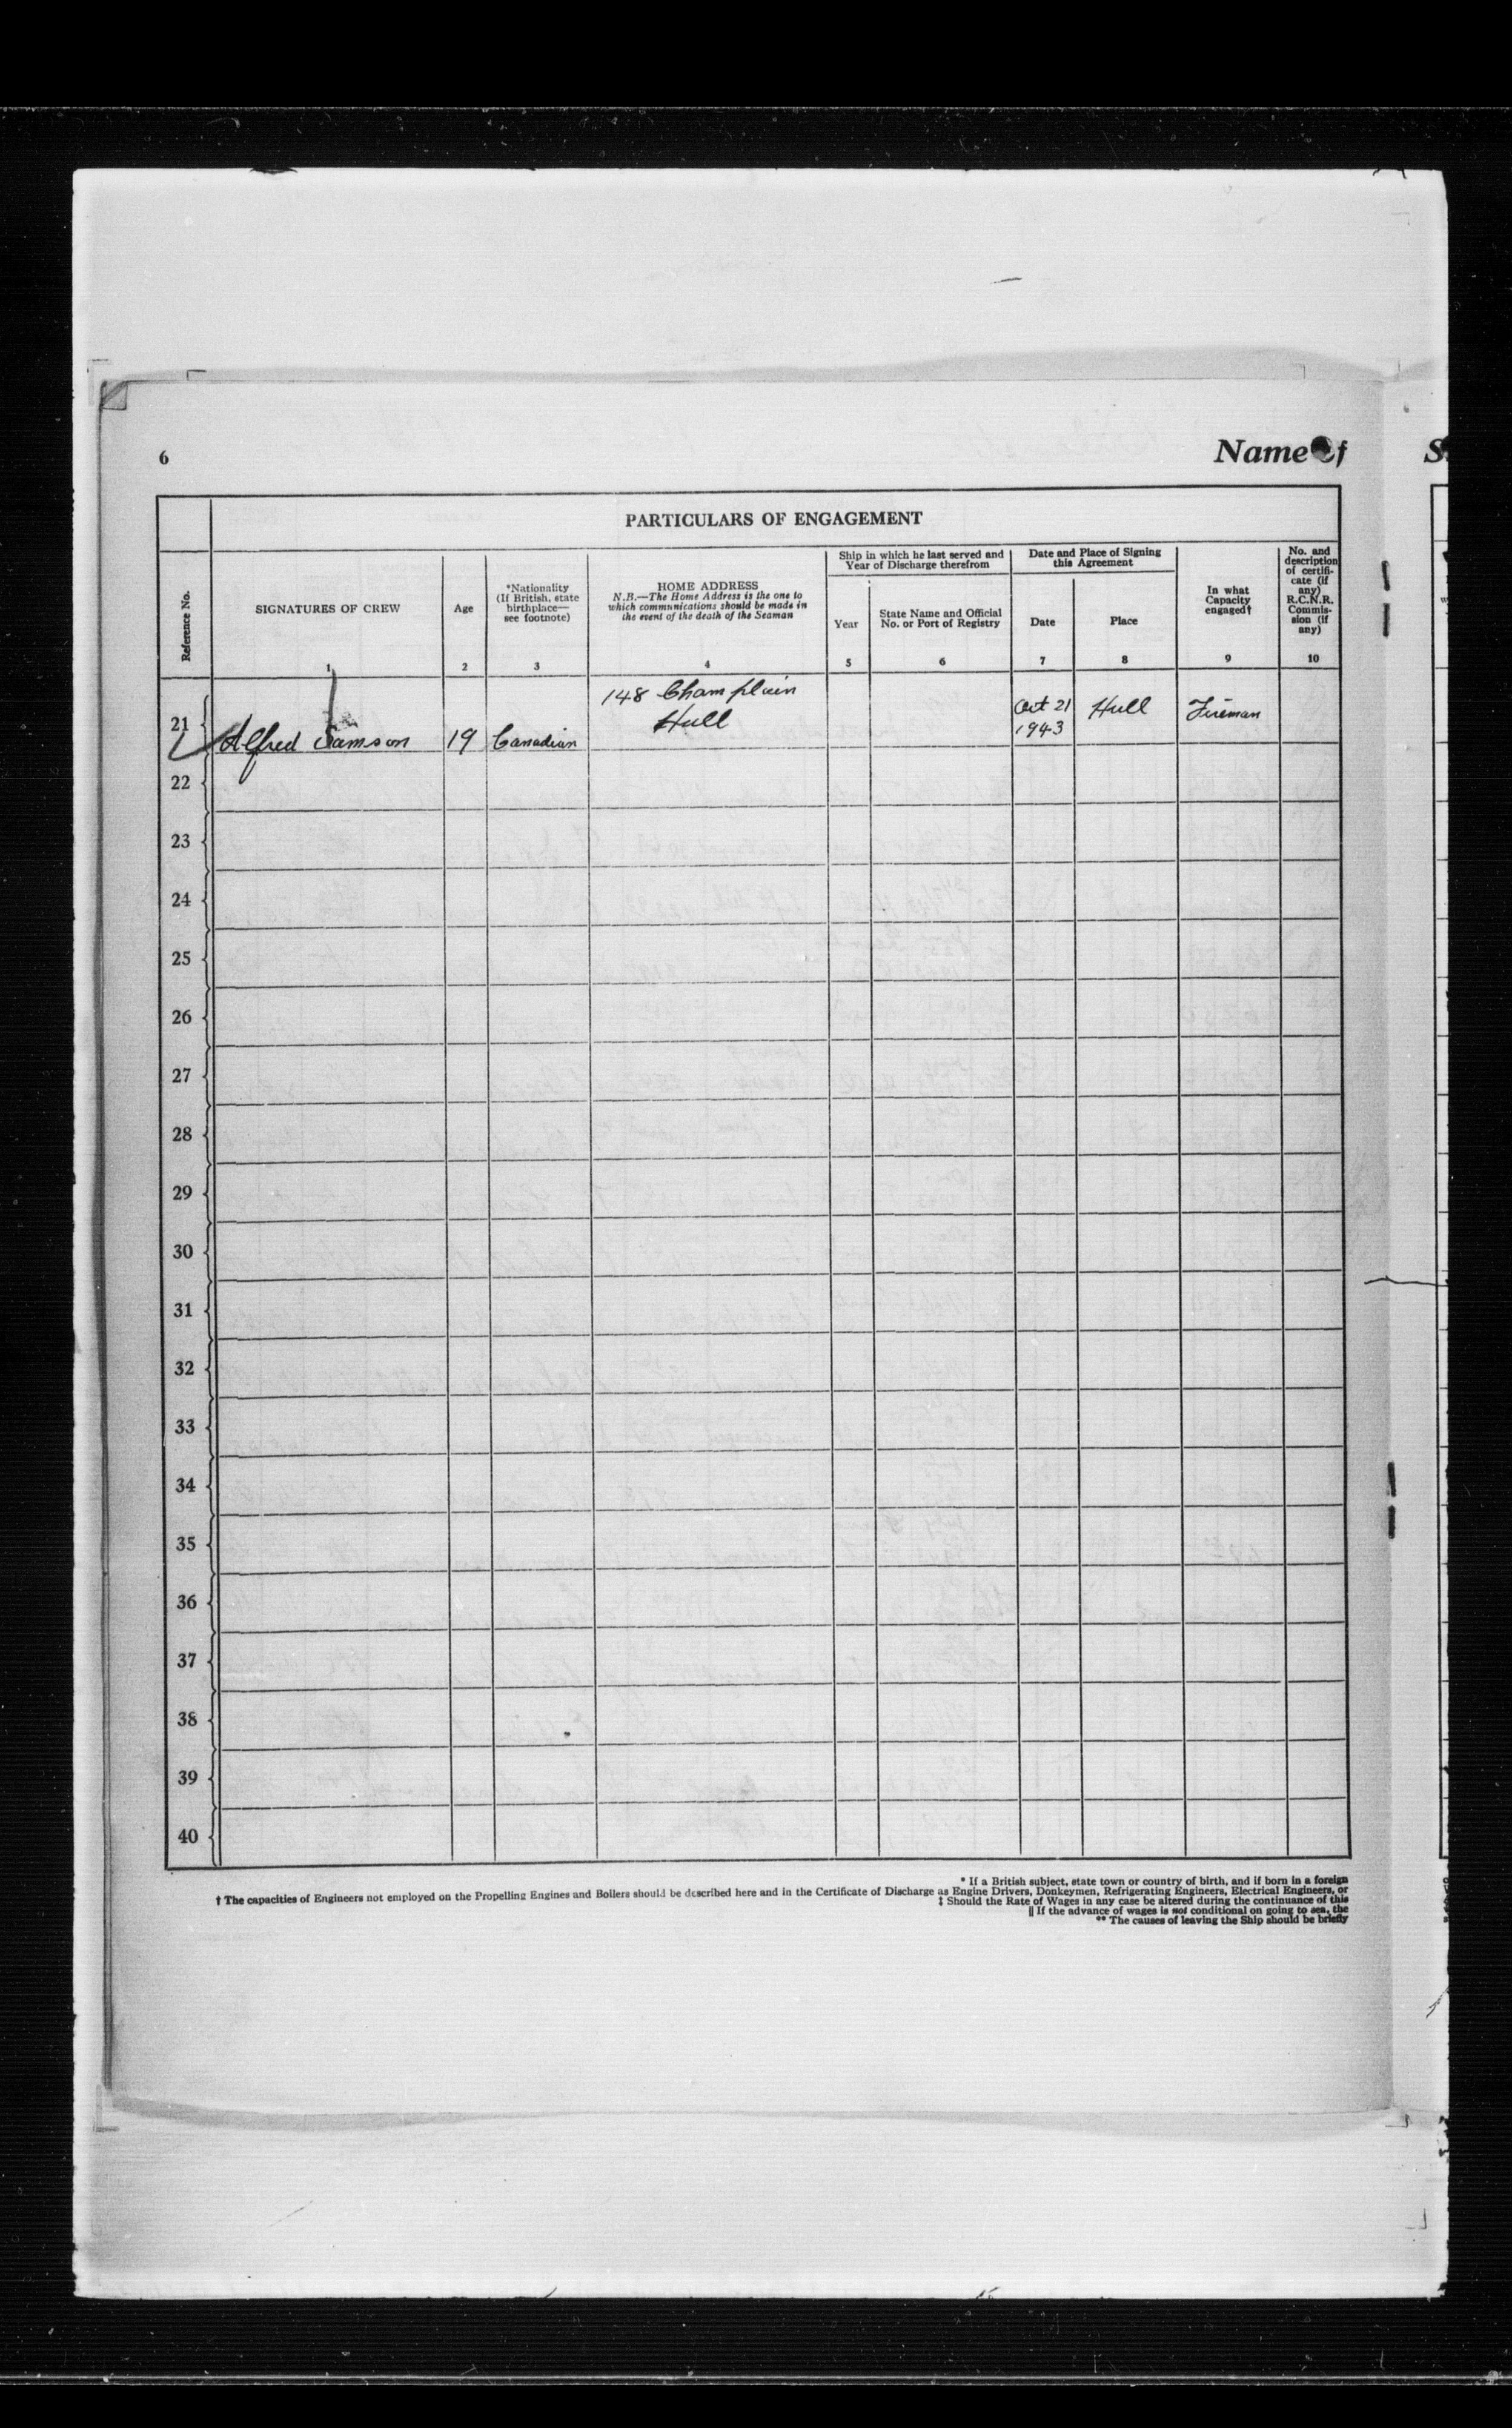 6
Name of
S
PARTICULARS OF ENGAGEMENT
Reference No.
SIGNATURES OF CREW
1
Age
2
*Nationality
(If British, state
birthplace—
see footnote)
3
HOME ADDRESS
N.B.—The Home Address is the one to
which communications should be made in
the event of the death of the Seaman
4
Ship in which he last served and
Year of Discharge therefrom
Year
5
State Name and Official
No. or Port of Registry
6
Date and Place of Signing
this Agreement
Date
7
Place
8
In what
Capacity
engaged†
9
No. and
description
of certifi-
cate (if
any)
R.C.N.R.
Commis-
sion (if
any)
10
21
Alfred Samson
19
Canadian
148 Champlain
Hull
Oct 21
1943
Hull
Fireman
22
23
24
25
26
27
28
29
30
31
32
33
34
35
36
37
38
39
40
* If a British subject, state town or country of birth, and if born in a foreign
† The capacities of Engineers not employed on the Propelling Engines and Boilers should be described here and in the Certificate of Discharge as Engine Drivers, Donkeymen, Refrigerating Engineers, Electrical Engineers, or
‡ Should the Rate of Wages in any case be altered during the continuance of this
|| If the advance of wages is not conditional on going to sea, the
** The causes of leaving the Ship should be briefly